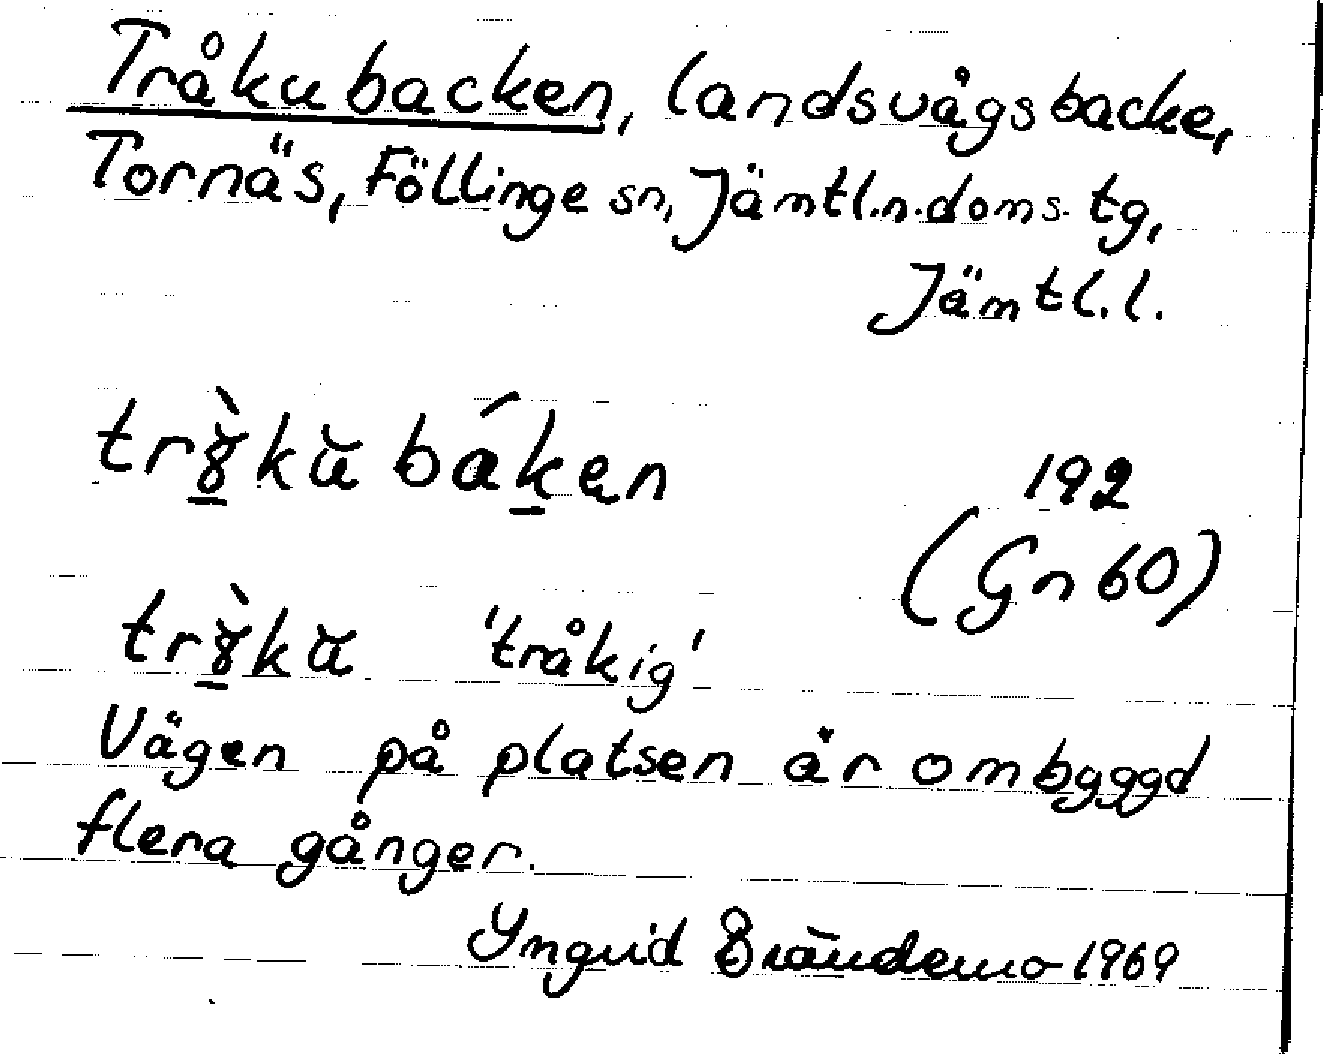 Tråkubacken, landsvågsbacke,
Tornäs, Föllinge sn, Jämtl.n.doms. tg,
Jämtl.l.
192
(Gn 60)
'tråkig'
Vägen på platsen är ombyggd
flera gånger.
Yngvid Brändemo 1969